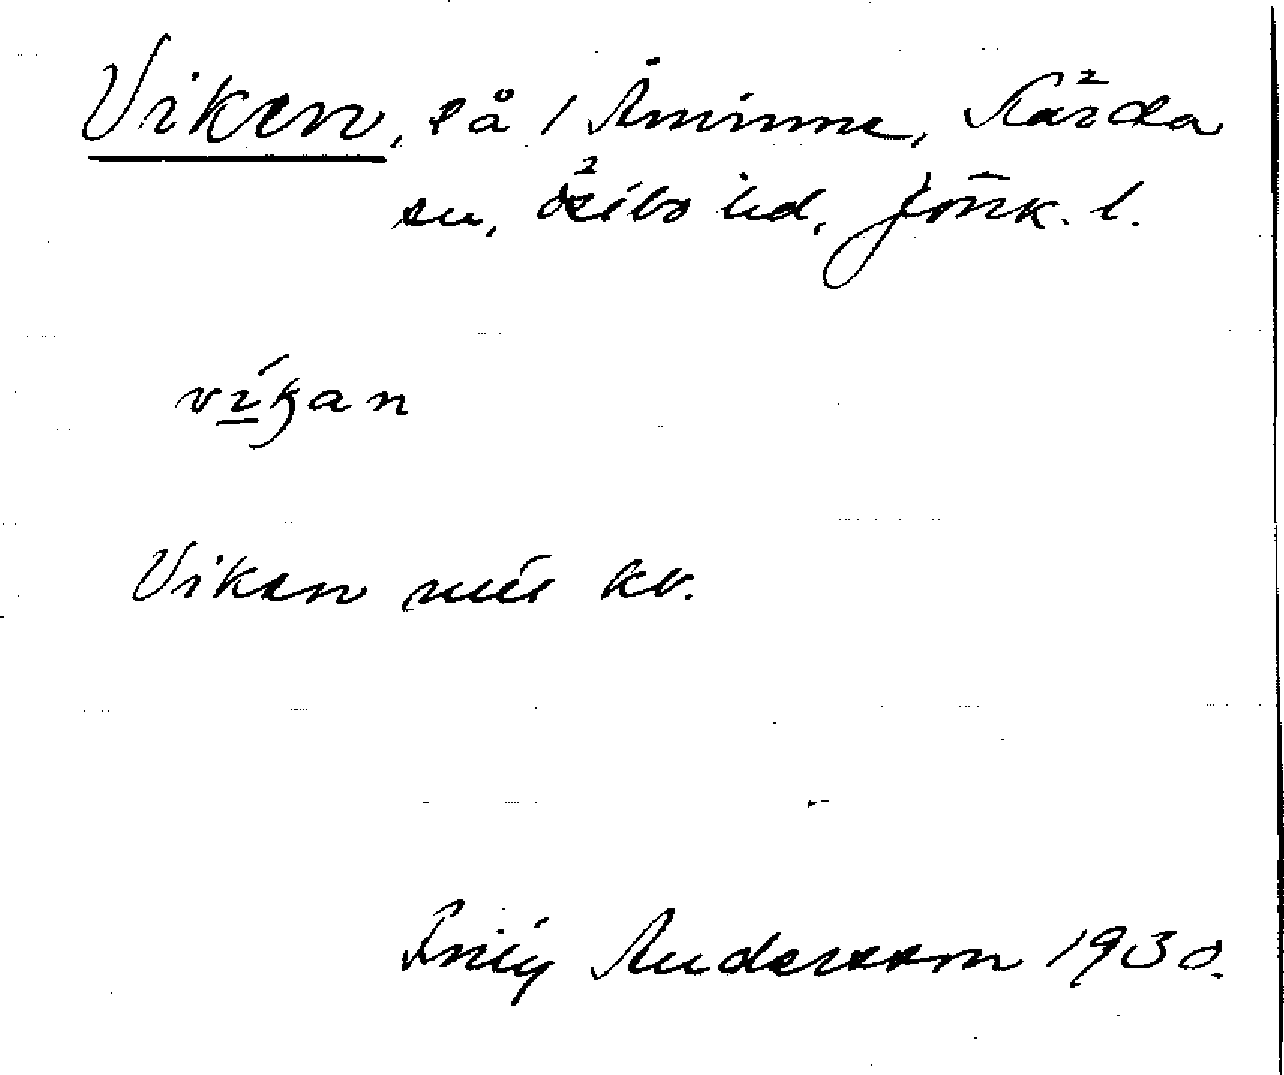 Viken, på / Åminne, Kärda
sn, Östbo hd, Jönk. l.
vikan
Viken mit kv.
Andersson 1930.